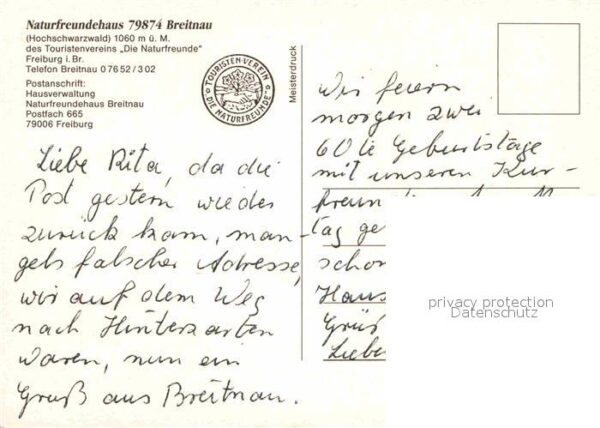 Naturfreundehaus 79874 Breitnau
(Hochschwarzwald) 1060 m ü. M.
des Touristenvereins „Die Naturfreunde"
Freiburg i. Br.
Telefon Breitnau 0 76 52 / 3 02
Postanschrift:
Hausverwaltung
Naturfreundehaus Breitnau
Postfach 665
79006 Freiburg
TOURISTEN-VEREIN
DIE NATURFREUNDE
Meisterdruck
Liebe Rita, da die
Post gestern wieder
zurück kam, man-
gels falscher Adresse,
wir auf dem Weg
nach Hinterzarten
waren, nun ein
Gruß aus Breitnau.
Wir feiern
morgen zwei
60te Geburtstage
mit unseren Kur-
freun
tag ge
schon
Haus
Grüß
Liebe
privacy protection
Datenschutz